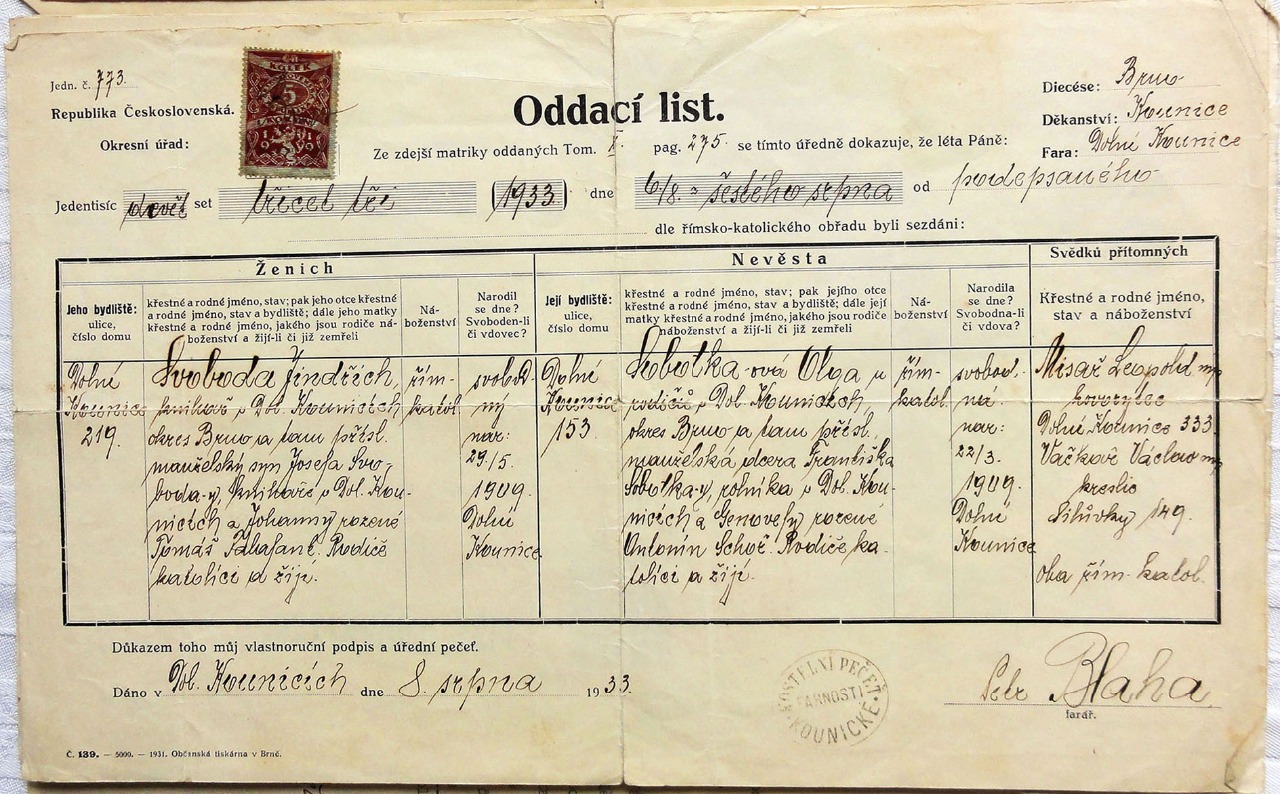 Jedn. č. 773.
Republika Československá.
Okresní úřad:
KOLEK
5
1919
Oddací list.
Diecése: Brno
Děkanství: Kounice
Fara: Dolní Kounice
Ze zdejší matriky oddaných Tom. X. pag. 275. se tímto úředně dokazuje, že léta Páně:
Jedentisíc devět set třicet tři (1933) dne 6/8. šestého srpna od podepsaného
dle římsko-katolického obřadu byli sezdáni:
Ženich
Nevěsta
Svědků přítomných
Jeho bydliště:
ulice,
číslo domu
křestné a rodné jméno, stav; pak jeho otce křestné
a rodné jméno, stav a bydliště; dále jeho matky
křestné a rodné jméno, jakého jsou rodiče ná-
boženství a žijí-li či již zemřeli
Ná-
boženství
Narodil
se dne?
Svoboden-li
či vdovec?
Její bydliště:
ulice,
číslo domu
křestné a rodné jméno, stav; pak jejího otce
křestné a rodné jméno, stav a bydliště; dále její
matky křestné a rodné jméno, jakého jsou rodiče
náboženství a žijí-li či již zemřeli
Ná-
boženství
Narodila
se dne?
Svobodna-li
či vdova?
Křestné a rodné jméno,
stav a náboženství
Dolní
Kounice
219.
Svoboda Jindřich,
knihař v Dol. Kounicích
okres Brno a tam přísl.
manželský syn Josefa Svo-
boda-y, knihaře v Dol. Kou-
nicích a Johanny rozené
Tomáš . Rodiče
katolíci a žijí.
řím-
katol.
svobod-
ný
nar:
29/5.
1909
Dolní
Kounice
Dolní
Kounice
153
Sobotka-ová Olga u
rodičů v Dol. Kounicích,
okres Brno a tam přísl.
manželská dcera Františka
Sobotka-y, rolníka v Dol. Kou-
nicích a Genovefy rozené
Antonín Schoř. Rodiče ka-
tolíci a žijí.
řím-
katol.
svobod-
ná
nar:
22/3.
1909.
Dolní
Kounice
Misař Leopold mp
kovorytec
Dolní Kounice 333
Vačkař Václav mp
kreslič
Silůvky 149.
oba řím. katol.
Důkazem toho můj vlastnoruční podpis a úřední pečeť.
Dáno v Dol. Kounicích dne 8. srpna 1933.
KOSTELNÍ PEČEŤ
FARNOSTI
KOUNICKÉ
Petr Blaha
farář.
Č. 139. — 5000. — 1931. Občanská tiskárna v Brně.